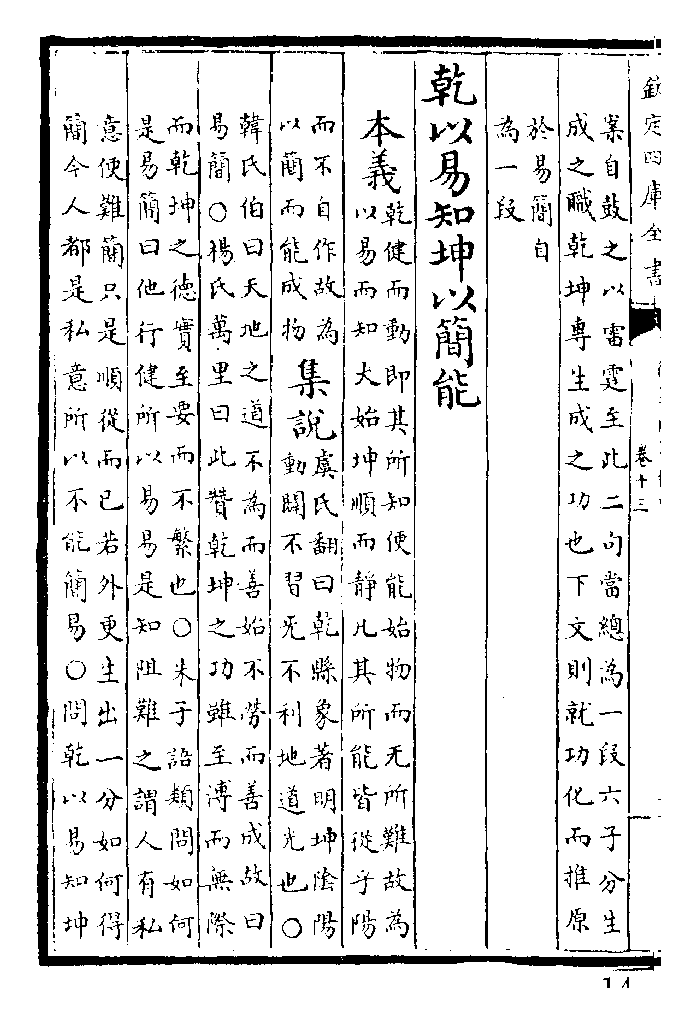 欽定四庫全書
卷十三
案自鼓之以雷霆至此二句當總為一段六子分生
成之職乾坤專生成之功也下文則就功化而推原
於易簡自
為一段
乾以易知坤以簡能
本義
乾健而動即其所知便能始物而无所難故為
以易而知大始坤順而靜凡其所能皆從乎陽
而不自作故為
以簡而能成物
集說
虞氏翻曰乾縣象著明坤陰陽
動闢不習无不利地道光也○
韓氏伯曰天地之道不為而善始不勞而善成故曰
易簡○楊氏萬里曰此贊乾坤之功雖至溥而無際
而乾坤之德實至要而不繁也○朱子語類問如何
是易簡曰他行健所以易易是知阻難之謂人有私
意便難簡只是順從而已若外更生出一分如何得
簡今人都是私意所以不能簡易○問乾以易知坤
14